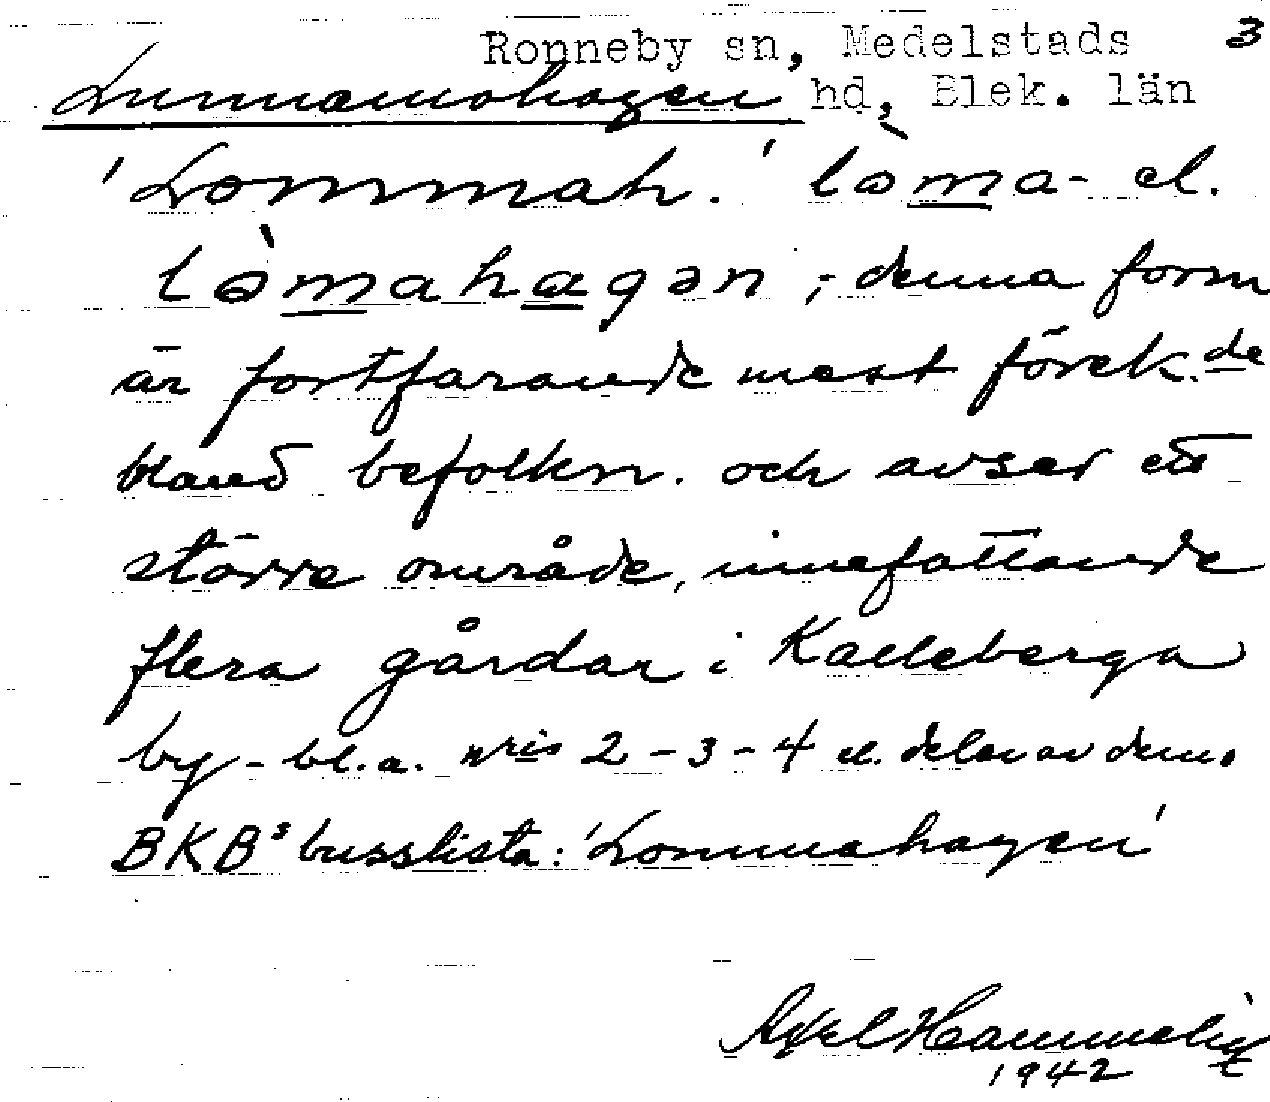 Ronneby sn, Medelstads 3
Lunnamohagen hd, Blek. län
'Lommah.' lòma- el.
lòmahagən ; denna form
är fortfarande mest förek.de
bland befolkn. och avser ett
större område, innefattande
flera gårdar i Kalleberga
by - bl.a. nris 2 - 3 - 4 el. delar av dem.
BKBs busslista: 'Lommahagen'
Axel Hammelin
1942